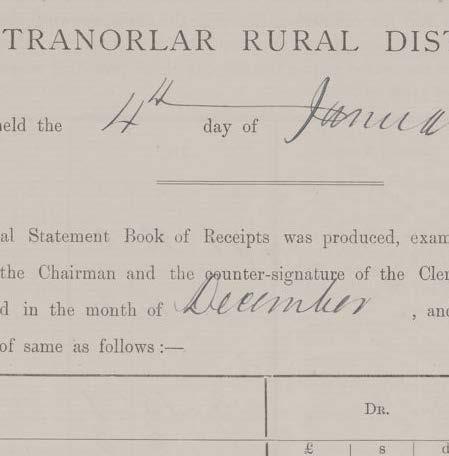 TRANORLAR RURAL DIST
held the 4th day of Janua
al Statement Book of Receipts was produced, exam
the Chairman and the counter-signature of the Cler
d in the month of December , and
of same as follows :—
Dr.
£ s d